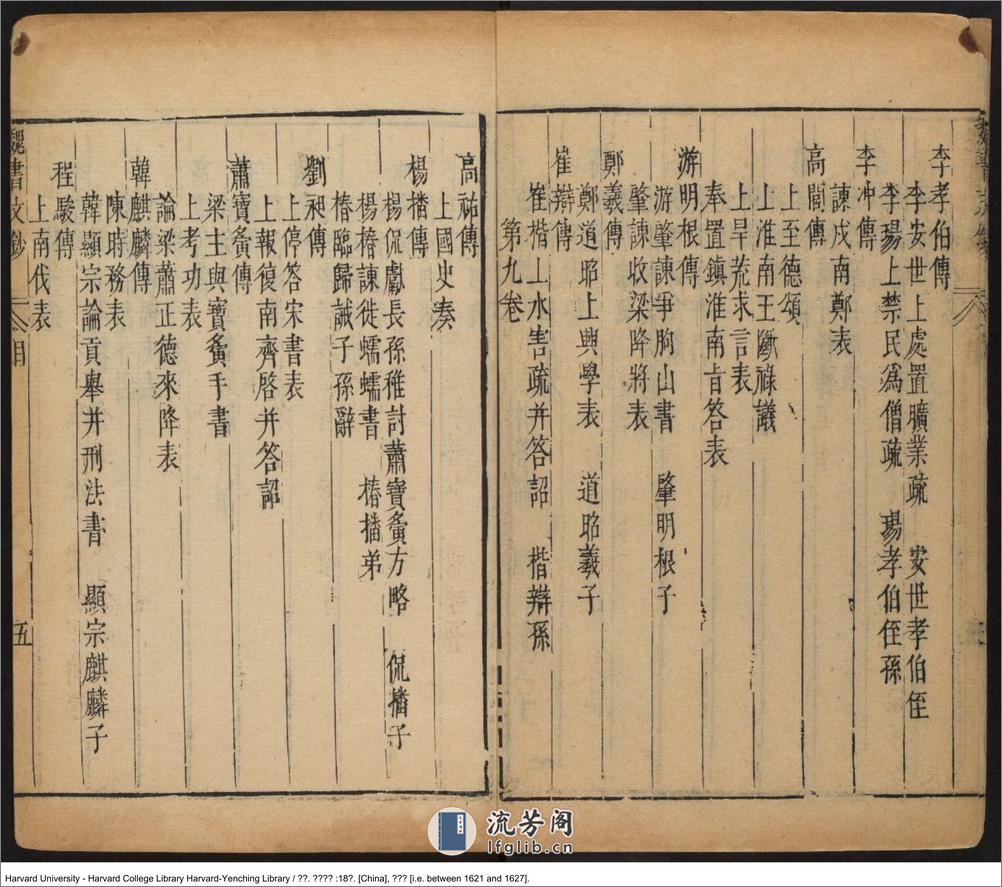 李孝伯傳
李安世上處置曠業疏　安世孝伯侄
李瑒上禁民為僧疏　瑒孝伯侄孫
李冲傳
諫戍南鄭表
高閭傳
上至德頌
上淮南王斷祿議
上旱荒求言表
奉置鎮淮南旨答表
游明根傳
游肇諫爭朐山書　肇明根子
肇諫收梁降將表
鄭羲傳
鄭道昭上興學表　道昭羲子
崔辯傳
崔楷上水害疏并答詔　楷辯孫
第九卷
高祐傳
上國史奏
楊播傳
楊侃獻長孫稚討蕭寶夤方略　侃播子
楊椿諫徙蠕蠕書　椿播弟
椿臨歸誡子孫辭
劉昶傳
上停答宋書表
上報復南齊啓并答詔
蕭寶夤傳
梁主與寶夤手書
上考功表
論梁蕭正德來降表
韓麒麟傳
陳時務表
韓顯宗論貢舉并刑法書　顯宗麒麟子
程駿傳
上南伐表
魏書文鈔
目
五
流芳阁
lfglib.cn
Harvard University - Harvard College Library Harvard-Yenching Library / ??. ???? :18?. [China], ??? [i.e. between 1621 and 1627].